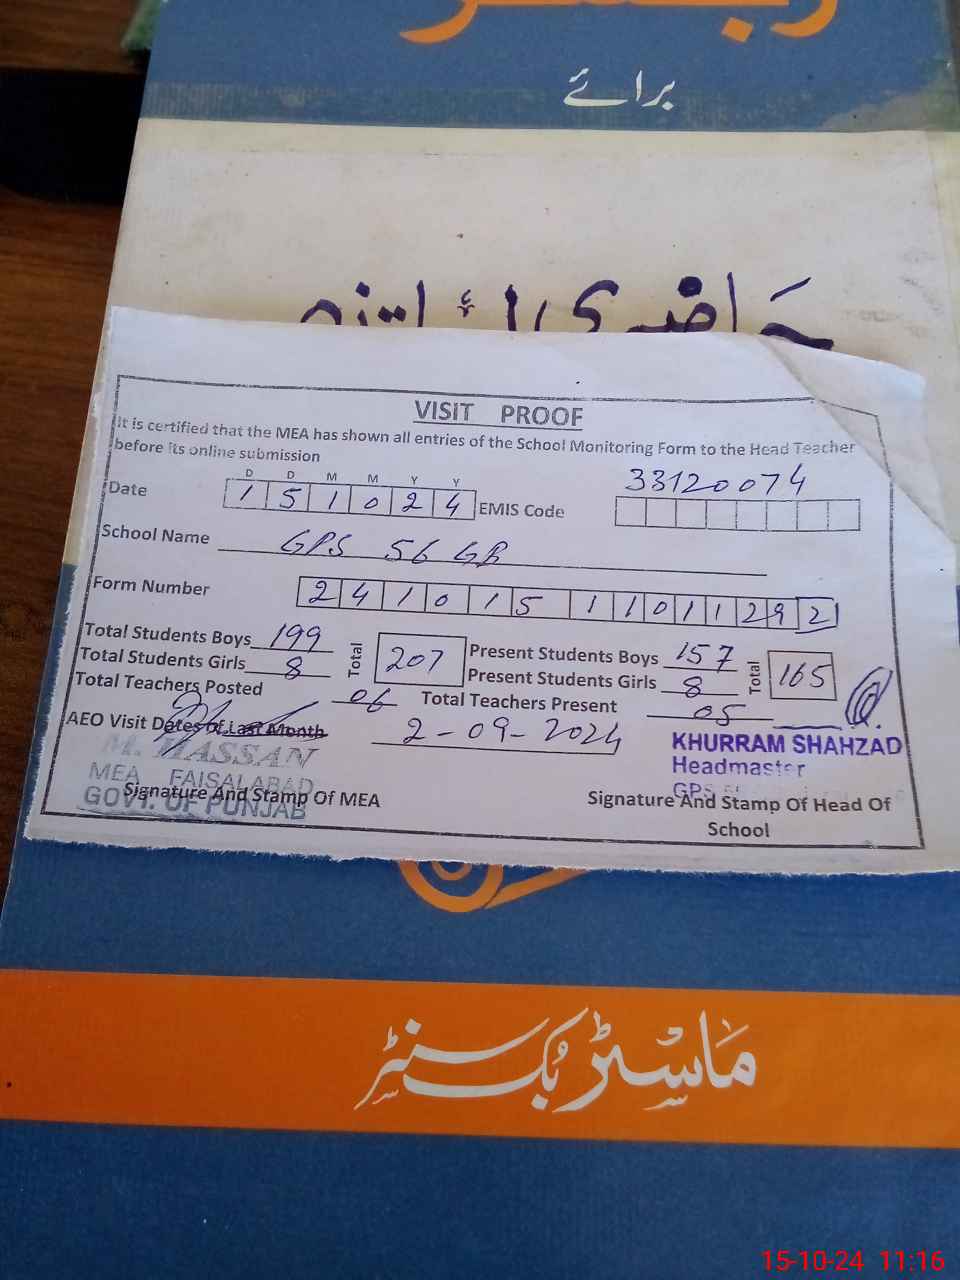 رجسٹر
برائے
حاضری اساتذہ
VISIT PROOF
It is certified that the MEA has shown all entries of the School Monitoring Form to the Head Teacher
before its online submission
D D M M Y Y
Date 1 5 1 0 2 4 EMIS Code 33120074
School Name GPS 56 GB
Form Number 2 4 1 0 1 5 1 1 0 1 1 2 9 2
Total Students Boys 199 Total 207 Present Students Boys 157 Total 165
Total Students Girls 8 Present Students Girls 8
Total Teachers Posted 06 Total Teachers Present 05
AEO Visit Dates of Last Month 2-09-2024
M. HASSAN
MEA FAISALABAD
GOVT. OF PUNJAB
Signature And Stamp Of MEA
KHURRAM SHAHZAD
Headmaster
GPS
Signature And Stamp Of Head Of
School
ماسٹر بک سنٹر
15-10-24 11:16